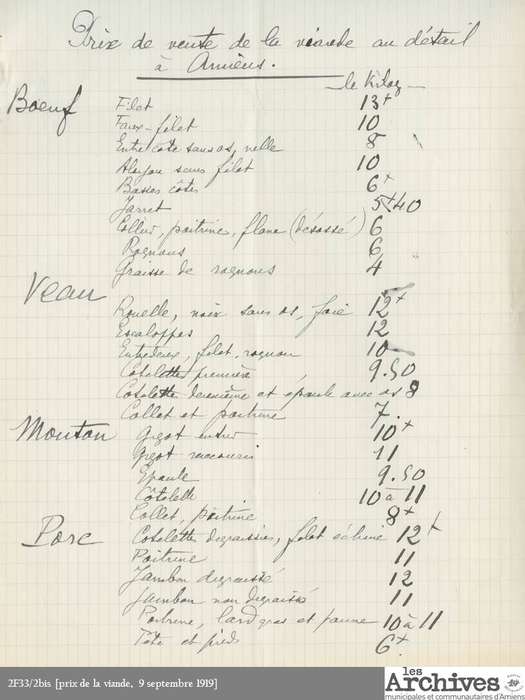 Prix de vente de la viande au détail
à Amiens.
le Kilog
Boeuf
Filet 13f
Faux-filet 10
Entrecôte sans os, 8
Aloyau sans filet 10
Basses côtes 6f
Jarret 5f40
Collier, poitrine, flanc (désossé) 6
Rognons 6
Graisse de rognons 4
Veau
Rouelle, noix sans os, foie 12f
Escaloppes 12
Entredeux, filet, rognon 10
Côtelette première 9.50
Cotelette deuxième et épaule avec os 8
Collet et poitrine 7.
Mouton
Gigot entier 10f
Gigot raccourci 11
Epaule 9.50
Côtelette 10 à 11
Collet, poitrine 8f
Porc
Cotelette dégraissée, filet échine 12f
Poitrine 11
Jambon dégraissé 12
Jambon non dégraissé 11
Poitrine, lard gras et panne 10 à 11
Tête et pieds 6f.
2F33/2bis [prix de la viande, 9 septembre 1919]
les Archives
municipales et communautaires d'Amiens